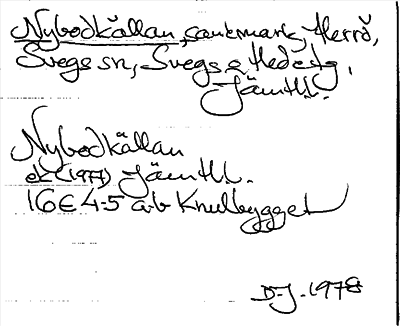 Nybodkällan, sankmark, Herrö,
Svegs sn, Svegs o Hede tg,
Jämtl.
Nybodkällan
ek (1977) Jämtl.
16E 4-5 a-b Knulbygget
D-J. 1978